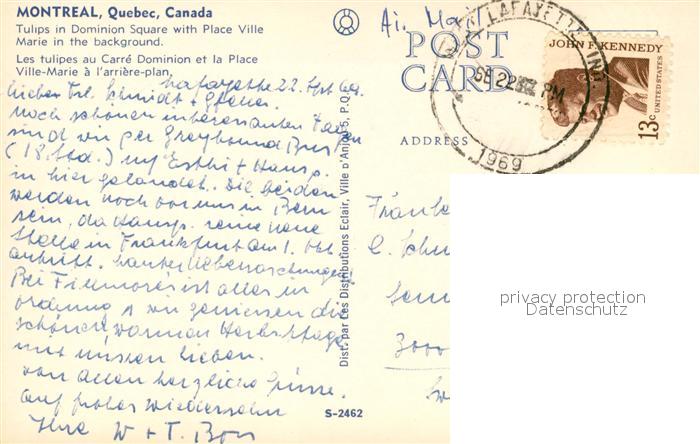 MONTREAL, Quebec, Canada
Tulips in Dominion Square with Place Ville
Marie in the background.
Les tulipes au Carré Dominion et la Place
Ville-Marie à l'arrière-plan.
Lafayette 22. Sept. 69
Lieber Frl. Schmidt +
Noch schönen interessanten Tagen
sind wir per Greyhound Bus
(18 Std.) mit Esthi + Hansp.
in hier gelandet. Die beiden
werden noch vor uns in Bern
sein, da Hansp. seine neue
Stelle in Frankfurt am 1. Okt.
antritt. Lauter Ueberraschungen!
Bei Fillmores ist alles in
Ordnung + wir geniessen die
schönen, warmen Herbsttage
mit unsern Lieben.
Von Allen herzliche Grüsse.
Auf frohes Wiedersehn
Ihre W + T.
Air Mail
POST
CARD
ADDRESS
LAFAYETTE, IND.
SEP 22 PM
1969
JOHN F. KENNEDY
UNITED STATES
13c
Dist. par Les Distributions Eclair, Ville d'Anjou 5, P.Q.
S-2462
3000
privacy protection
Datenschutz